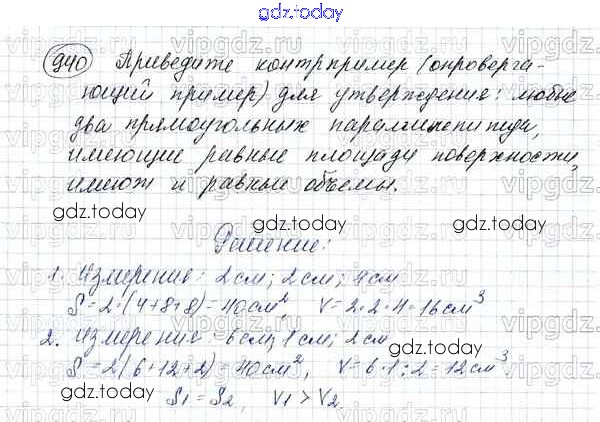 gdz.today
940 Приведите контрпример (опроверга-
ющий пример) для утверждения: любые
два прямоугольных параллелепипеда,
имеющие равные площади поверхности,
имеют и равные объемы.
gdz.today gdz.today gdz.today
Решение:
1. Измерение: 2 см; 2 см; 4 см
S = 2·(4+8+8) = 40 см², V = 2·2·4 = 16 см³
2. Измерение 6 см, 1 см; 2 см
S = 2(6+12+2) = 40 см², V = 6·1:2 = 12 см³.
S1 = S2, V1 > V2.
gdz.today gdz.today gdz.today